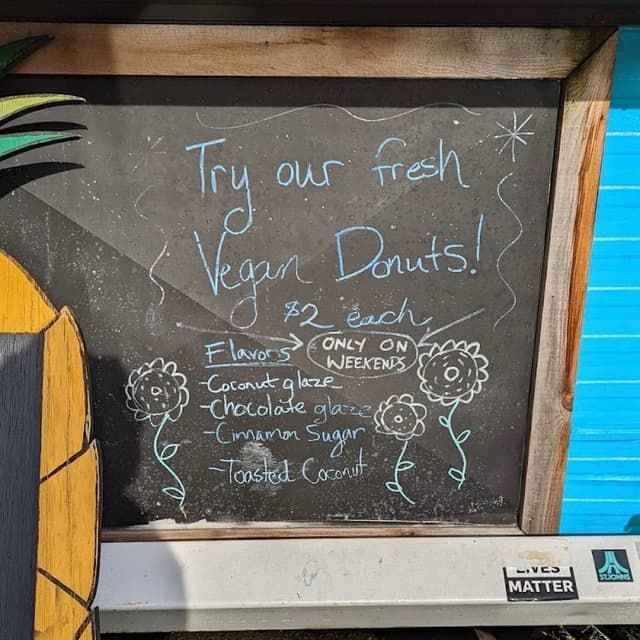 Try our fresh
Vegan Donuts!
$2 each
Flavors
ONLY ON
WEEKENDS
-Coconut glaze
-Chocolate glaze
-Cinnamon Sugar
-Toasted Coconut
LIVES
MATTER
ST.JOHNS